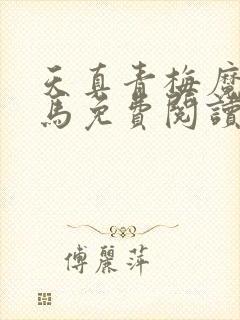 天真青梅魔
馬免費閱讀
傅麗萍